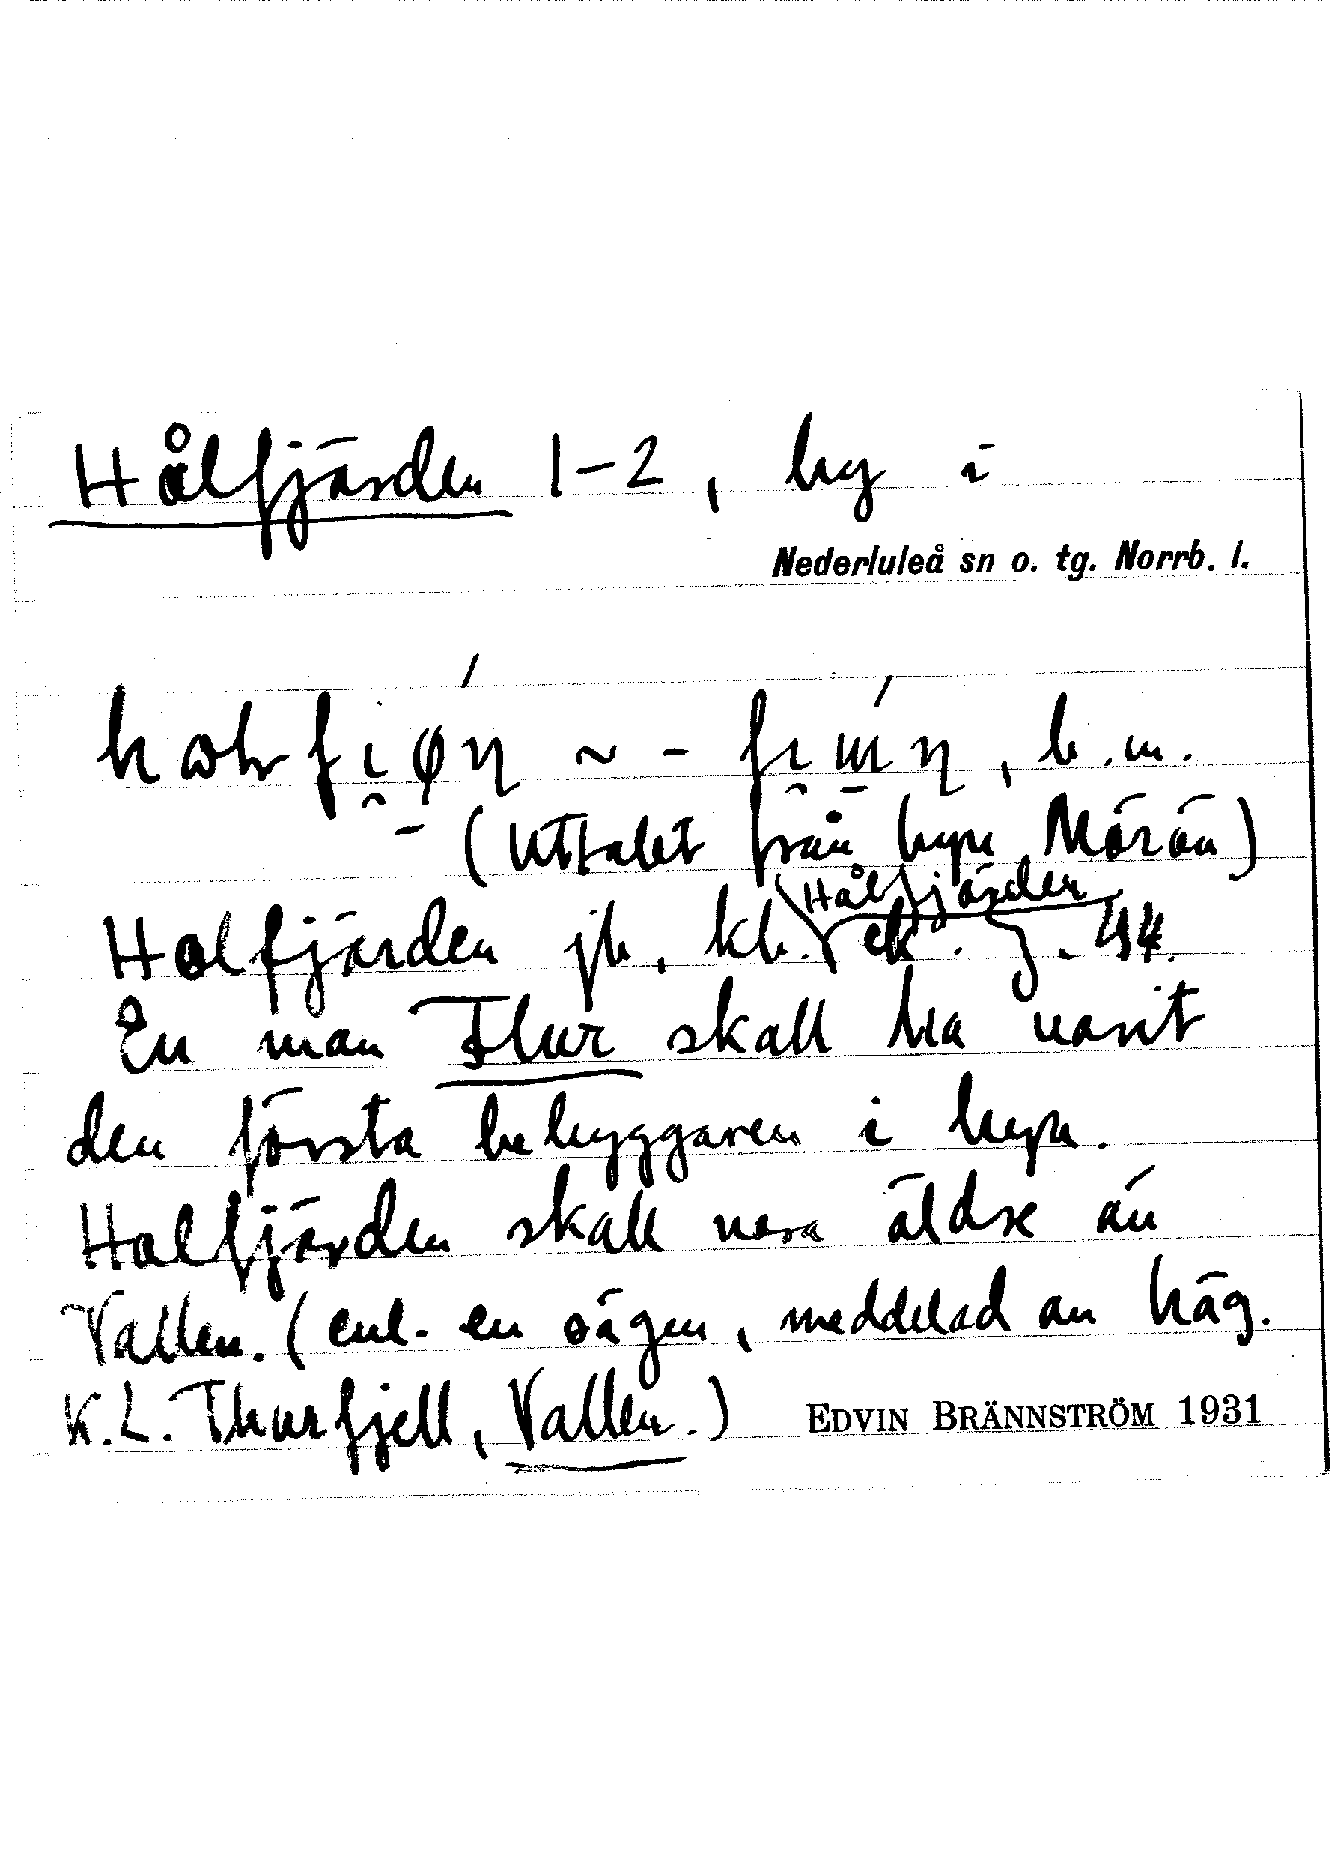 Hålfjärden 1-2, by i
Nederluleå sn o. tg. Norrb. l.
b. m.
(Uttalet från byn Mörön)
Hålfjärden
Holfjärden jb, kb. ek. 44.
En man Thur skall ha varit
den första bebyggaren i byn.
Holfjärden skall vara äldre än
Vallen. (enl. en sägen, meddelad av häg.
K.L. Thurfjell, Vallen.) EDVIN BRÄNNSTRÖM 1931